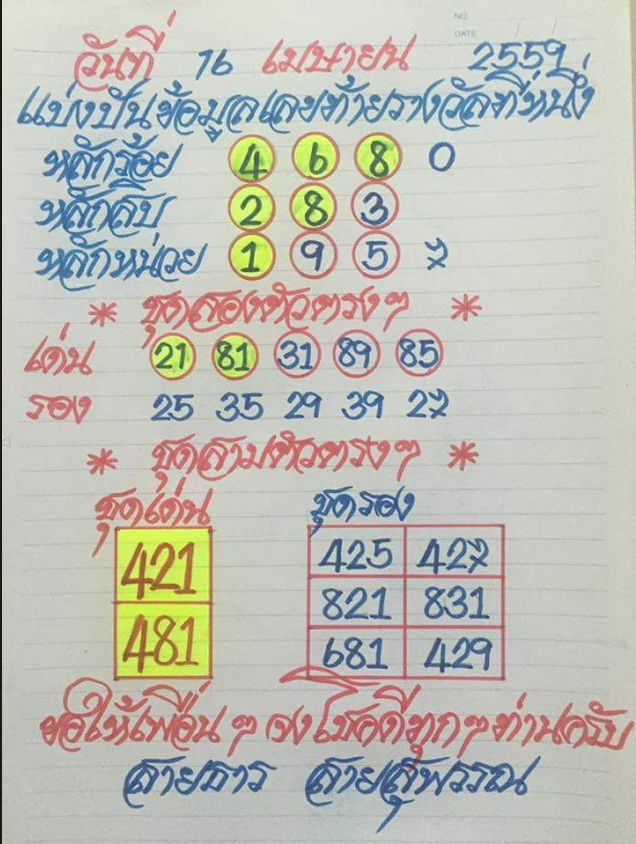 NO
DATE / /
วันที่ 16 เมษายน 2559
แบ่งปันข้อมูลเลขท้ายรางวัลที่หนึ่ง
หลักร้อย 4 6 8 0
หลักสิบ 2 8 3
หลักหน่วย 1 9 5 7
* ชุดสองตัวตรงๆ *
เด่น 21 81 31 89 85
รอง 25 35 29 39 27
* ชุดสามตัวตรงๆ *
ชุดเด่น ชุดรอง
421 425 427
481 821 831
681 429
ขอให้เพื่อนๆ จงโชคดีทุกๆท่านครับ
สายธาร สายสุพรรณ